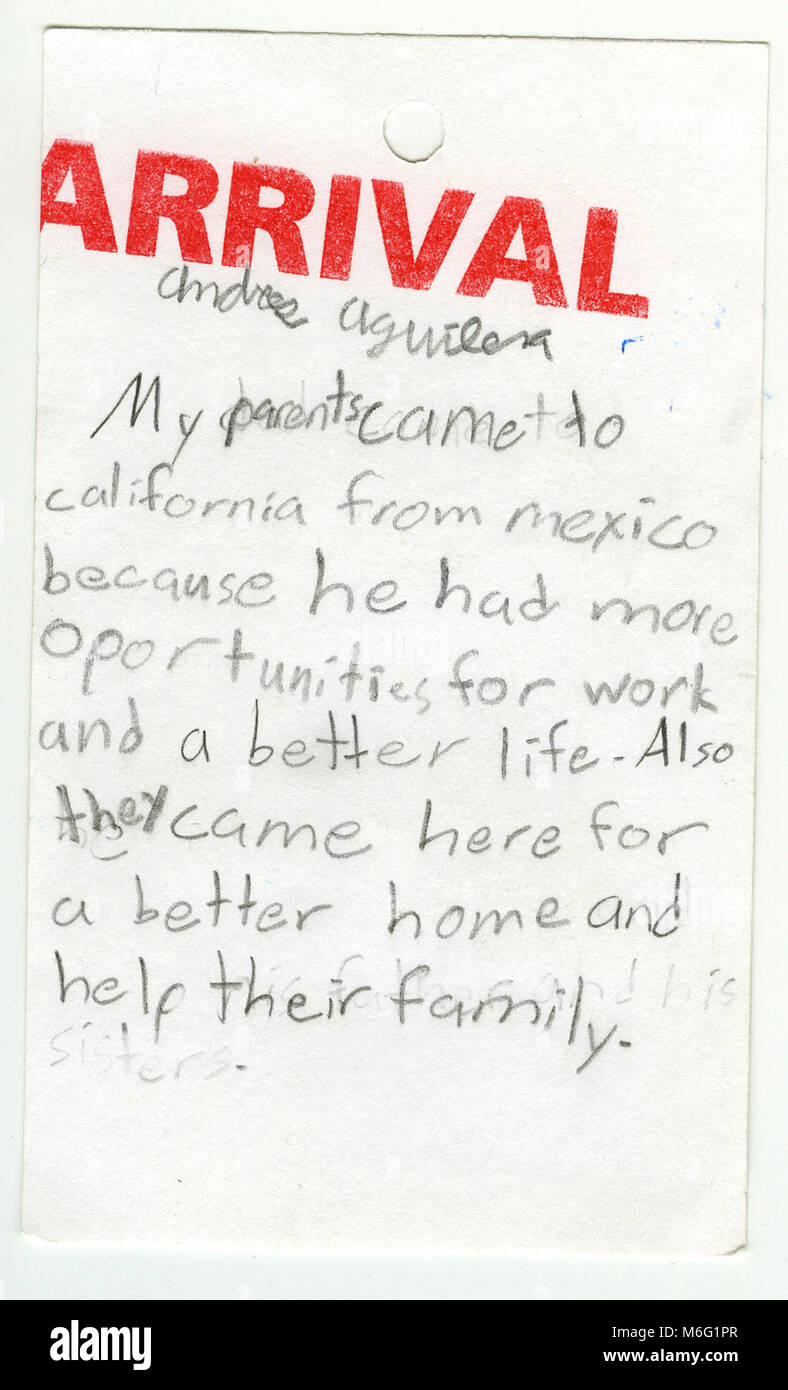 ARRIVAL
andrez aguilera
My parents came to
california from mexico
because he had more
oportunities for work
and a better life. Also
they came here for
a better home and
help their family.
sisters.
alamy
Image ID: M6G1PR
www.alamy.com